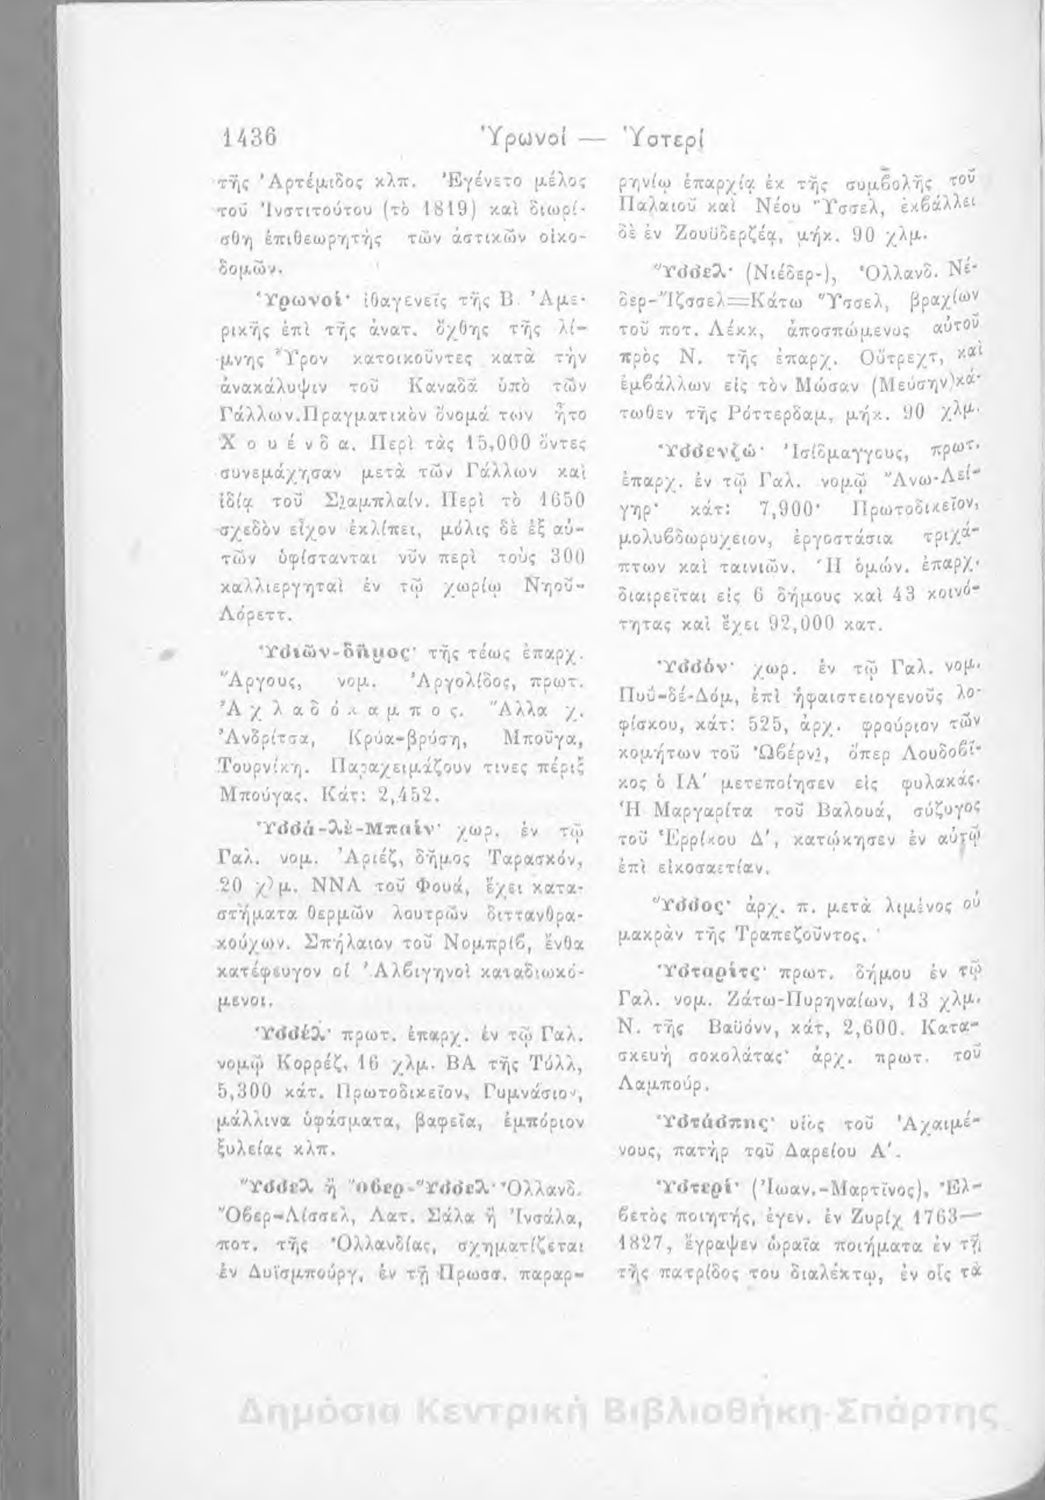 1436 Ὑρωνοί — Ὑστερί
τῆς Ἀρτέμιδος κλπ. Ἐγένετο μέλος
τοῦ Ἰνστιτούτου (τὸ 1819) καὶ διωρί-
σθη ἐπιθεωρητὴς τῶν ἀστικῶν οἰκο-
δομῶν.
Ὑρωνοί· ἰθαγενεῖς τῆς Β. Ἀμε-
ρικῆς ἐπὶ τῆς ἀνατ. ὄχθης τῆς λί-
μνης Ὕρον κατοικοῦντες κατὰ τὴν
ἀνακάλυψιν τοῦ Καναδᾶ ὑπὸ τῶν
Γάλλων. Πραγματικὸν ὄνομά των ἦτο
Χουένδα. Περὶ τὰς 15,000 ὄντες
συνεμάχησαν μετὰ τῶν Γάλλων καὶ
ἰδίᾳ τοῦ Σαμπλαίν. Περὶ τὸ 1650
σχεδὸν εἶχον ἐκλίπει, μόλις δὲ ἐξ αὐ-
τῶν ὑφίστανται νῦν περὶ τοὺς 300
καλλιεργηταὶ ἐν τῷ χωρίῳ Νηοῦ-
Λόρεττ.
Ὑσιῶν-δῆμος· τῆς τέως ἐπαρχ.
Ἄργους, νομ. Ἀργολίδος, πρωτ.
Ἀχλαδόκαμπος. Ἄλλα χ.
Ἀνδρίτσα, Κρύα-βρύση, Μπούγα,
Τουρνίκη. Παραχειμάζουν τινες πέριξ
Μπούγας. Κάτ: 2,452.
Ὑσσά-λὲ-Μπαίν· χωρ. ἐν τῷ
Γαλ. νομ. Ἀριέζ, δῆμος Ταρασκόν,
20 χλμ. ΝΝΑ τοῦ Φουά, ἔχει κατα-
στήματα θερμῶν λουτρῶν διττανθρα-
κούχων. Σπήλαιον τοῦ Νομπρίβ, ἔνθα
κατέφευγον οἱ Ἀλβιγηνοὶ καταδιωκό-
μενοι.
Ὑσσέλ· πρωτ. ἐπαρχ. ἐν τῷ Γαλ.
νομῷ Κορρέζ, 16 χλμ. ΒΑ τῆς Τύλλ,
5,300 κάτ. Πρωτοδικεῖον, Γυμνάσιον,
μάλλινα ὑφάσματα, βαφεῖα, ἐμπόριον
ξυλείας κλπ.
Ὕσσελ ἢ Ὄβερ-Ὕσσελ· Ὁλλανδ.
Ὄβερ-Λίσσελ, Λατ. Σάλα ἢ Ἰνσάλα,
ποτ. τῆς Ὁλλανδίας, σχηματίζεται
ἐν Δυϊσμπούργ, ἐν τῇ Πρωσσ. παραρ-
ρηνίῳ ἐπαρχίᾳ ἐκ τῆς συμβολῆς τοῦ
Παλαιοῦ καὶ Νέου Ὕσσελ, ἐκβάλλει
δὲ ἐν Ζουϋδερζέᾳ, μήκ. 90 χλμ.
Ὕσσελ· (Νιέδερ-), Ὁλλανδ. Νέ-
δερ-Ἴζσσελ=Κάτω Ὕσσελ, βραχίων
τοῦ ποτ. Λέκκ, ἀποσπώμενος αὐτοῦ
πρὸς Ν. τῆς ἐπαρχ. Οὔτρεχτ, καὶ
ἐμβάλλων εἰς τὸν Μώσαν (Μεύσην) κά-
τωθεν τῆς Ρόττερδαμ, μήκ. 90 χλμ.
Ὑσσενζώ· Ἰσίδμαγγους, πρωτ.
ἐπαρχ. ἐν τῷ Γαλ. νομῷ Ἄνω-Λεί-
γηρ· κάτ: 7,900· Πρωτοδικεῖον,
μολυβδωρυχεῖον, ἐργοστάσια τριχά-
πτων καὶ ταινιῶν. Ἡ ὁμών. ἐπαρχ.
διαιρεῖται εἰς 6 δήμους καὶ 43 κοινό-
τητας καὶ ἔχει 92,000 κατ.
Ὑσσόν· χωρ. ἐν τῷ Γαλ. νομ.
Πυΰ-δέ-Δόμ, ἐπὶ ἡφαιστειογενοῦς λο-
φίσκου, κάτ: 525, ἀρχ. φρούριον τῶν
κομήτων τοῦ Ὠβέρνι, ὅπερ Λουδοβῖ-
κος ὁ ΙΑ΄ μετεποίησεν εἰς φυλακάς.
Ἡ Μαργαρίτα τοῦ Βαλουά, σύζυγος
τοῦ Ἑρρίκου Δ΄, κατῴκησεν ἐν αὐτῷ
ἐπὶ εἰκοσαετίαν.
Ὕσσος· ἀρχ. π. μετὰ λιμένος οὐ
μακρὰν τῆς Τραπεζοῦντος.
Ὑσταρίτς· πρωτ. δήμου ἐν τῷ
Γαλ. νομ. Κάτω-Πυρηναίων, 13 χλμ.
Ν. τῆς Βαϋόνν, κάτ, 2,600. Κατα-
σκευὴ σοκολάτας· ἀρχ. πρωτ. τοῦ
Λαμπούρ.
Ὑστάσπης· υἱὸς τοῦ Ἀχαιμέ-
νους, πατὴρ τοῦ Δαρείου Α΄.
Ὑστερί· (Ἰωαν.-Μαρτῖνος), Ἑλ-
βετὸς ποιητής, ἐγεν. ἐν Ζυρίχ 1763—
1827, ἔγραψεν ὡραῖα ποιήματα ἐν τῇ
τῆς πατρίδος του διαλέκτῳ, ἐν οἷς τὰ
Δημόσια Κεντρική Βιβλιοθήκη Σπάρτης